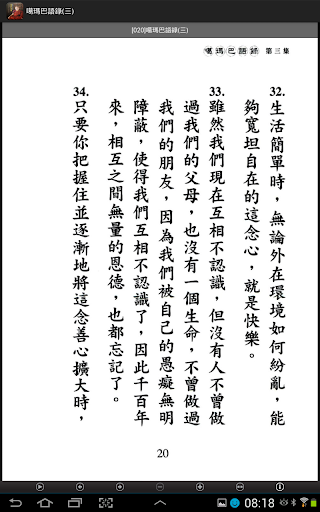 噶瑪巴語錄(三)
[020]噶瑪巴語錄(三)
噶瑪巴語錄 第三集
32.生活簡單時，無論外在環境如何紛亂，能
夠寬坦自在的這念心，就是快樂。
33.雖然我們現在互相不認識，但沒有人不曾做
過我們的父母，也沒有一個生命，不曾做過
我們的朋友，因為我們被自己的愚癡無明
障蔽，使得我們互相不認識了，因此千百年
來，相互之間無量的恩德，也都忘記了。
34.只要你把握住並逐漸地將這念善心擴大時，
20
08:18